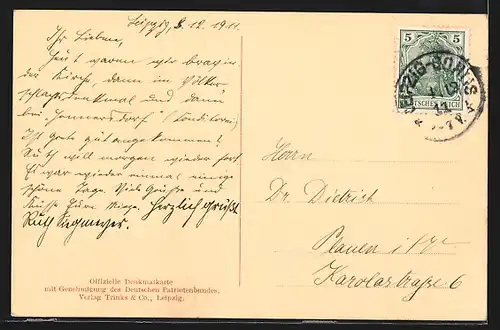 Leipzig, 3. 12. 1911.
Ihr Lieben,
Heut waren wir brav in
der Kirche, dann im Völker-
schlachtdenkmal und dann
bei Sommersdorf (Konditorei)
Ist Grete gut angekommen?
Ruth will morgen wieder fort
Es war wieder einmal einige
schöne Tage. Viele Grüße und
Küsse Eure
Herzlich grüßt
Ruth
Offizielle Denkmalkarte
mit Genehmigung des Deutschen Patriotenbundes.
Verlag Trinks & Co., Leipzig.
5 5
DEUTSCHES REICH
LEIPZIG-GOHLIS
Herrn
Dr. Dietrist
Plauen i/V.
Karolastraße 6